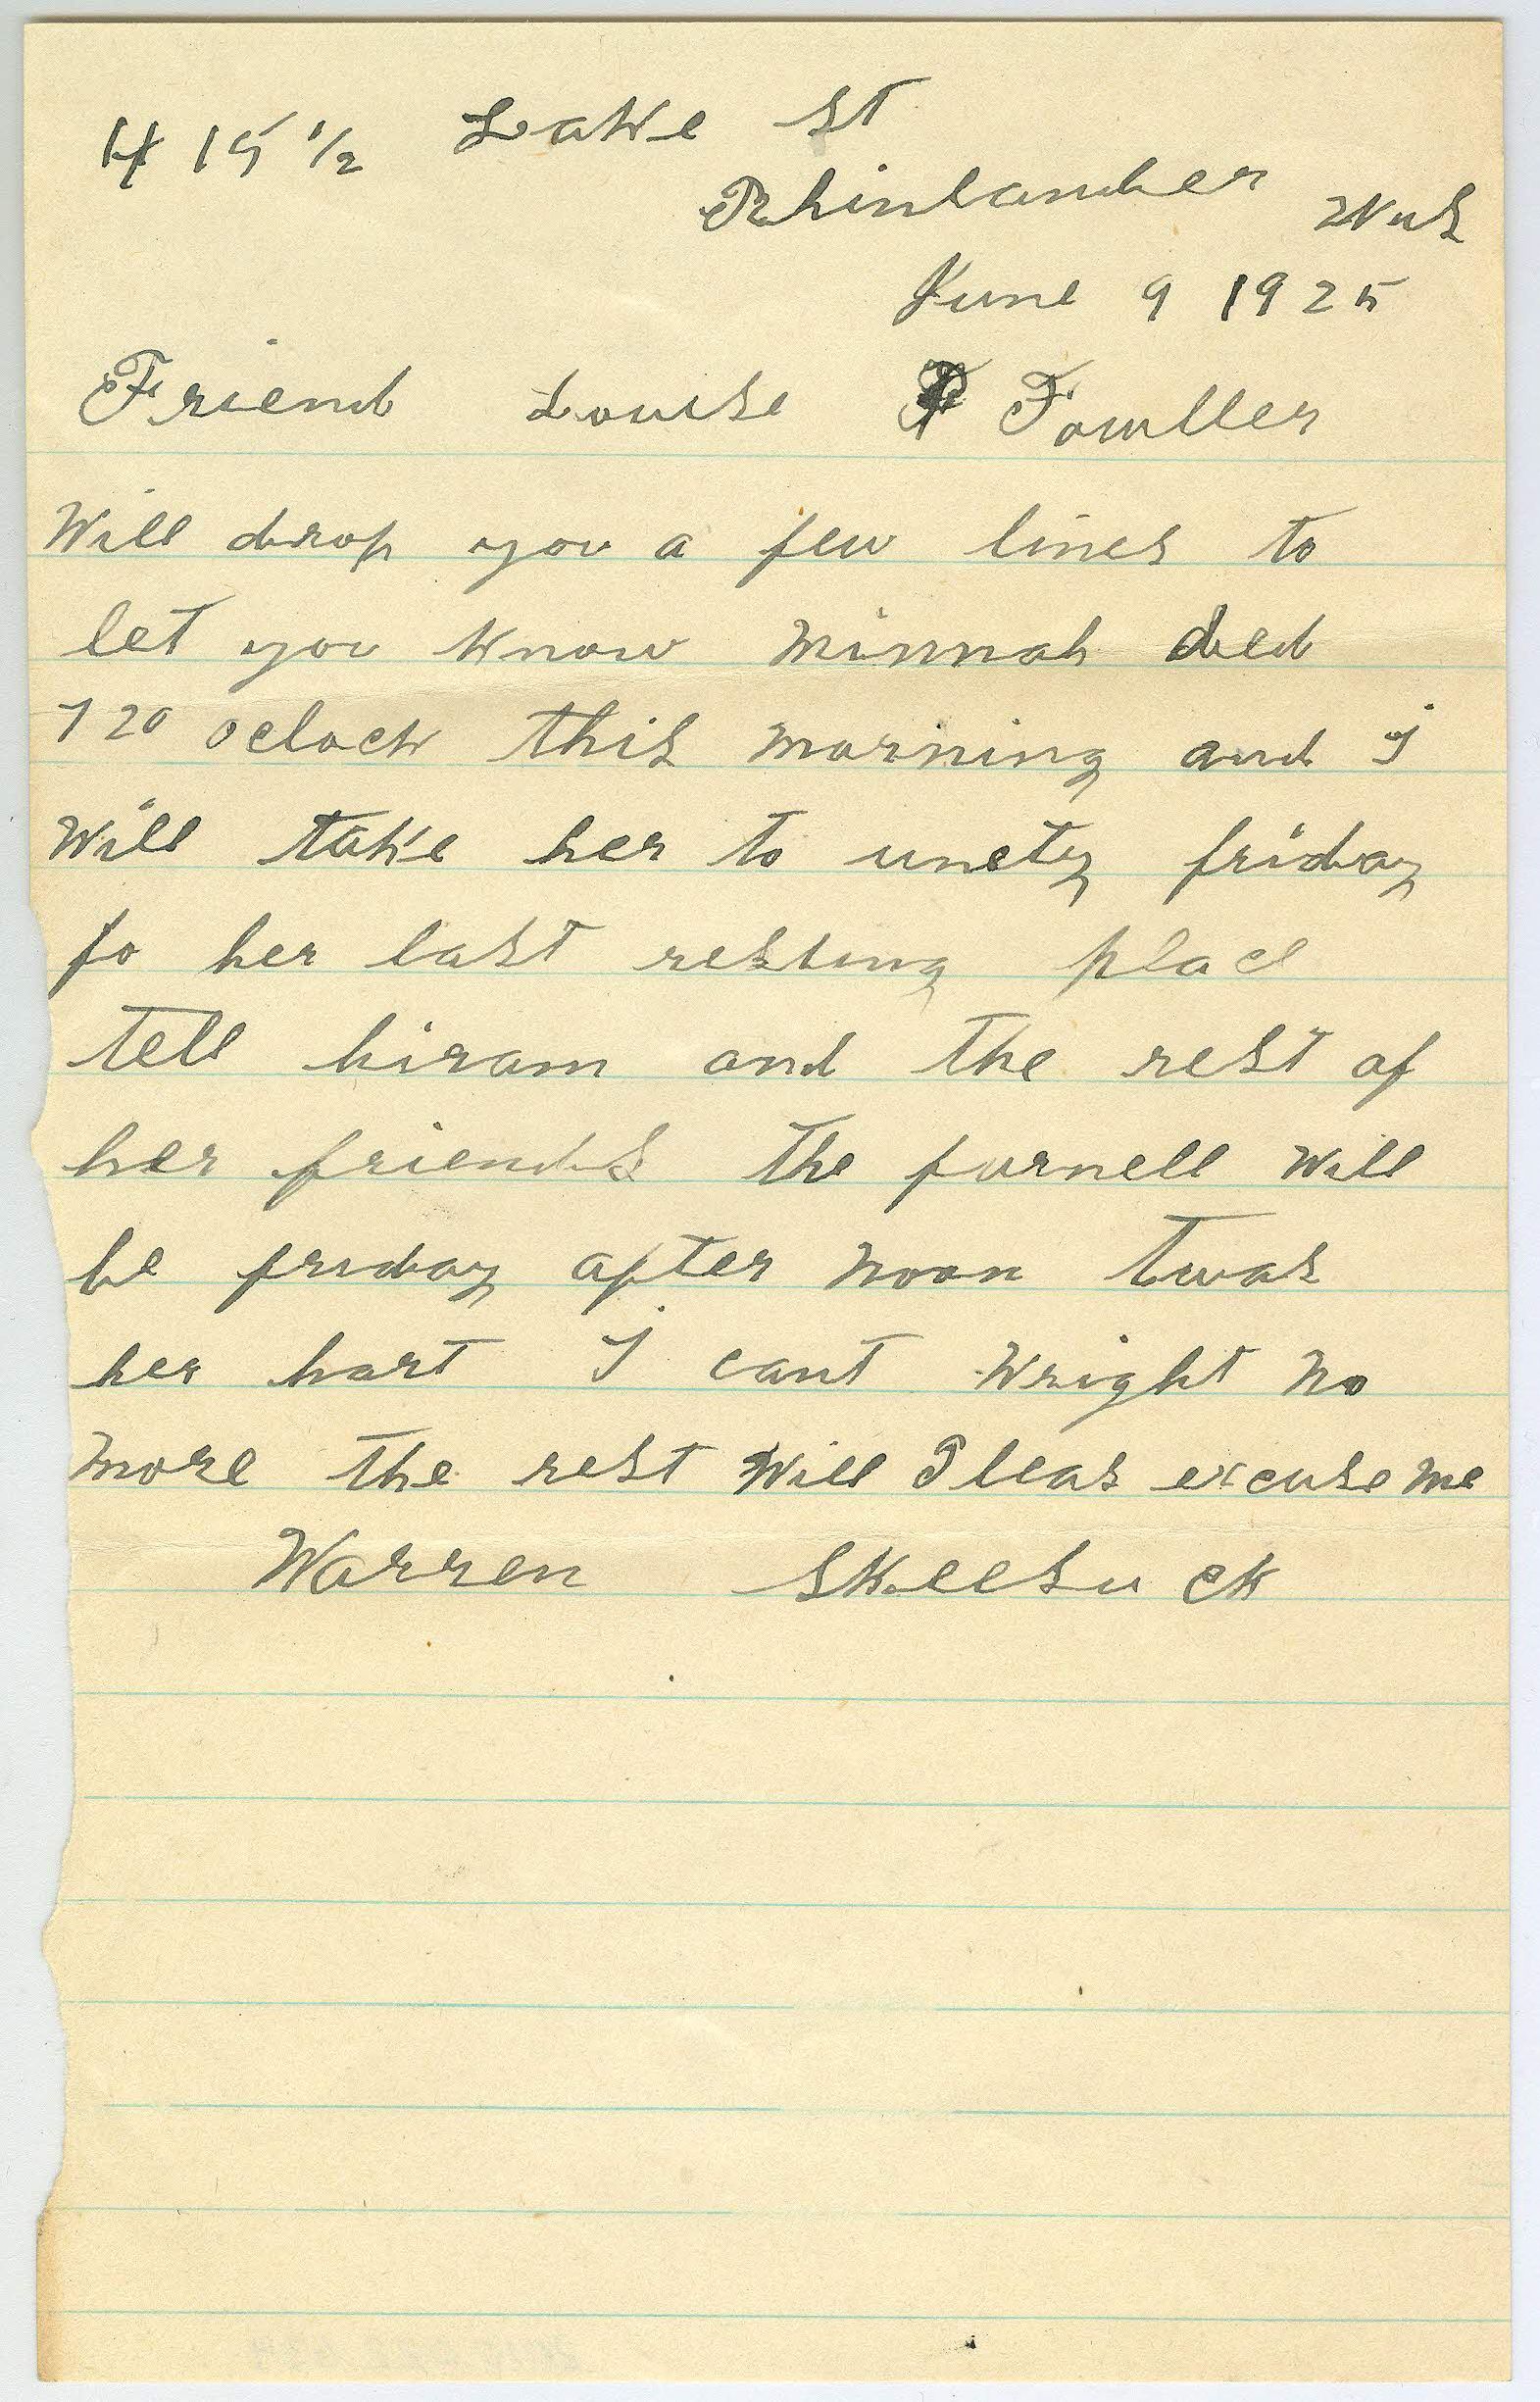 415 1/2 Lake St
Rhinlander Wis
June 9 1925
Friend Louise Fowller
Will drop you a few lines to
let you know Minnah died
7 20 oclock this morning and I
Will take her to unety friday
fo her last resting place
tell hiram and the rest of
her friends the furnell will
be friday after noon twas
her hart I cant wright no
more the rest will Pleas excuse me
Warren Skeesuck